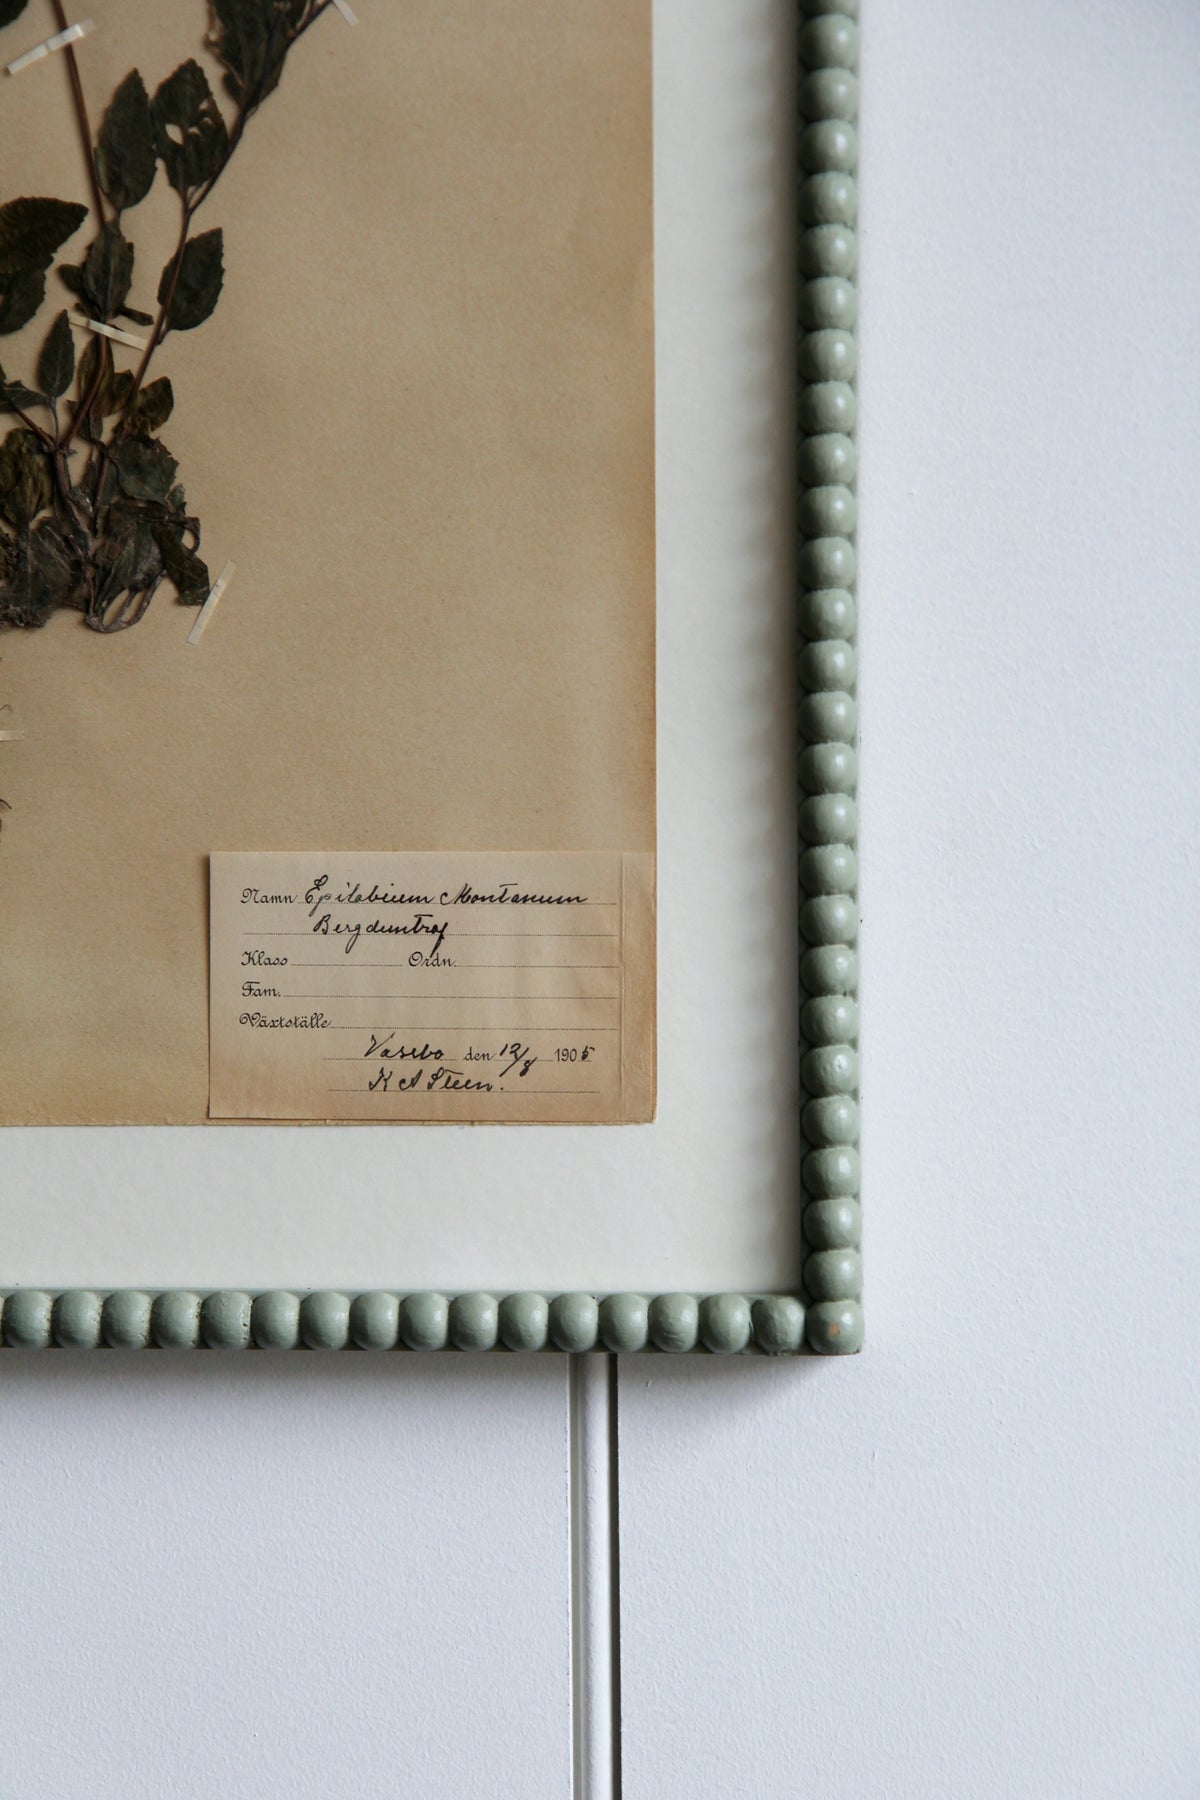 Namn Epilobium Montanum
Bergduntraf
Klass Ordn.
Fam.
Växtställe
Vasebo den 12/8 1905
K A Steen.